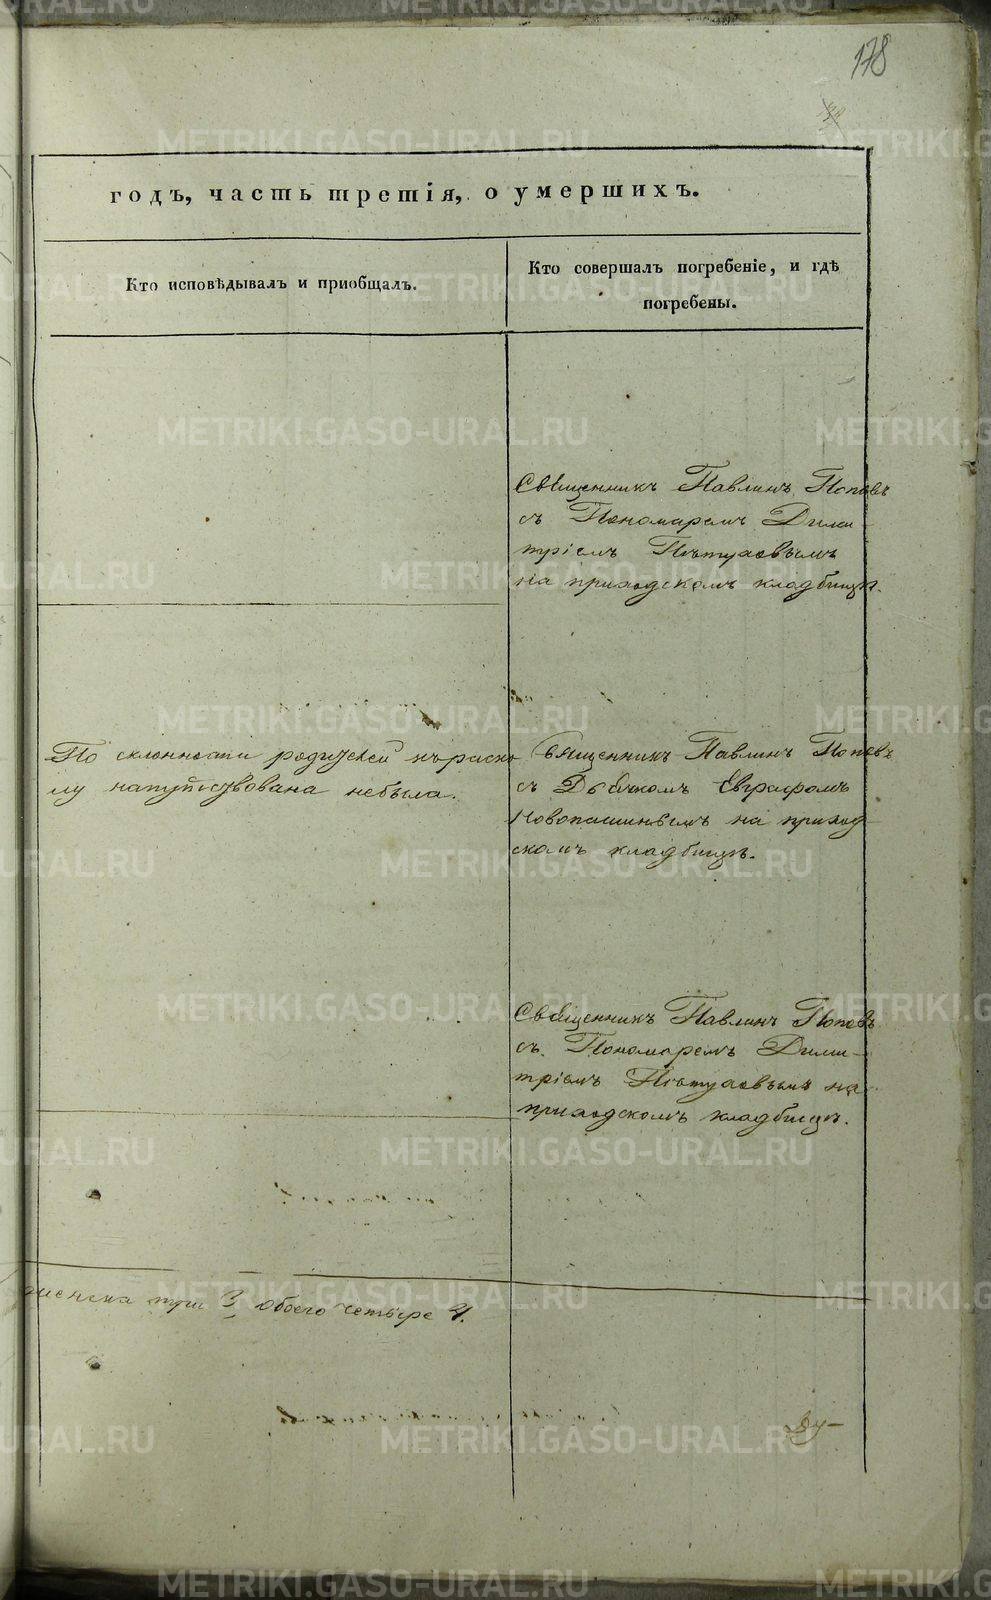 178
годъ, часть третія, о умершихъ.
Кто исповѣдывалъ и приобщалъ.
Кто совершалъ погребеніе, и гдѣ
погребены.
Священникъ Павлинъ Поповъ
съ Пономаремъ Дими-
тріемъ Пѣтуховымъ
на приходскомъ кладбищѣ.
По склонности родителей къ раско
лу напутствована небыла.
Священникъ Павлинъ Поповъ
съ Дьячкомъ Евграфомъ
Новопашинымъ на приход
скомъ кладбищѣ.
Священникъ Павлинъ Поповъ
съ Пономаремъ Дими-
тріемъ Пѣтуховымъ на
приходскомъ кладбищѣ.
женска три 3, обоего четыре 4.
Ду-
METRIKI.GASO-URAL.RU